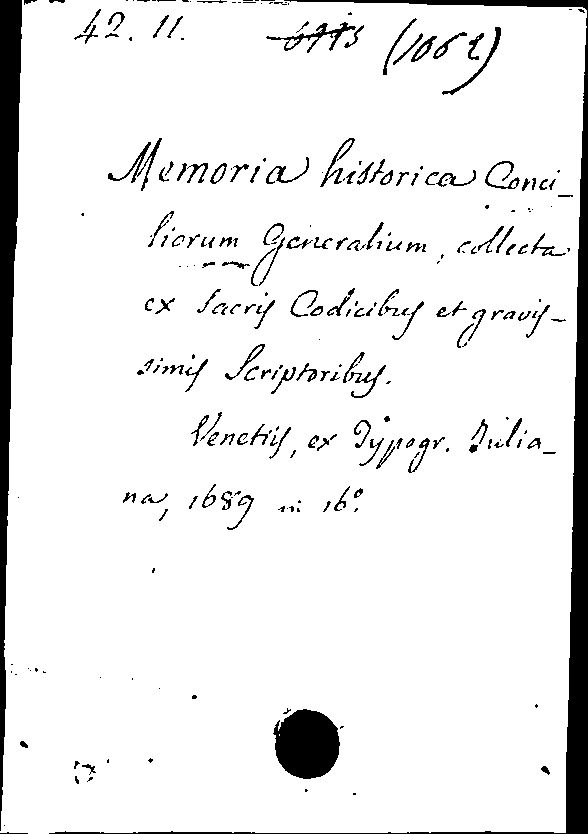 42. 11. (1062)
Memoria historica Conci-
liorum Generalium, collecta
ex Sacris Codicibus et gravis-
simis Scriptoribus.
Venetiis, ex Typogr. Julia-
na, 1689 in 16º.